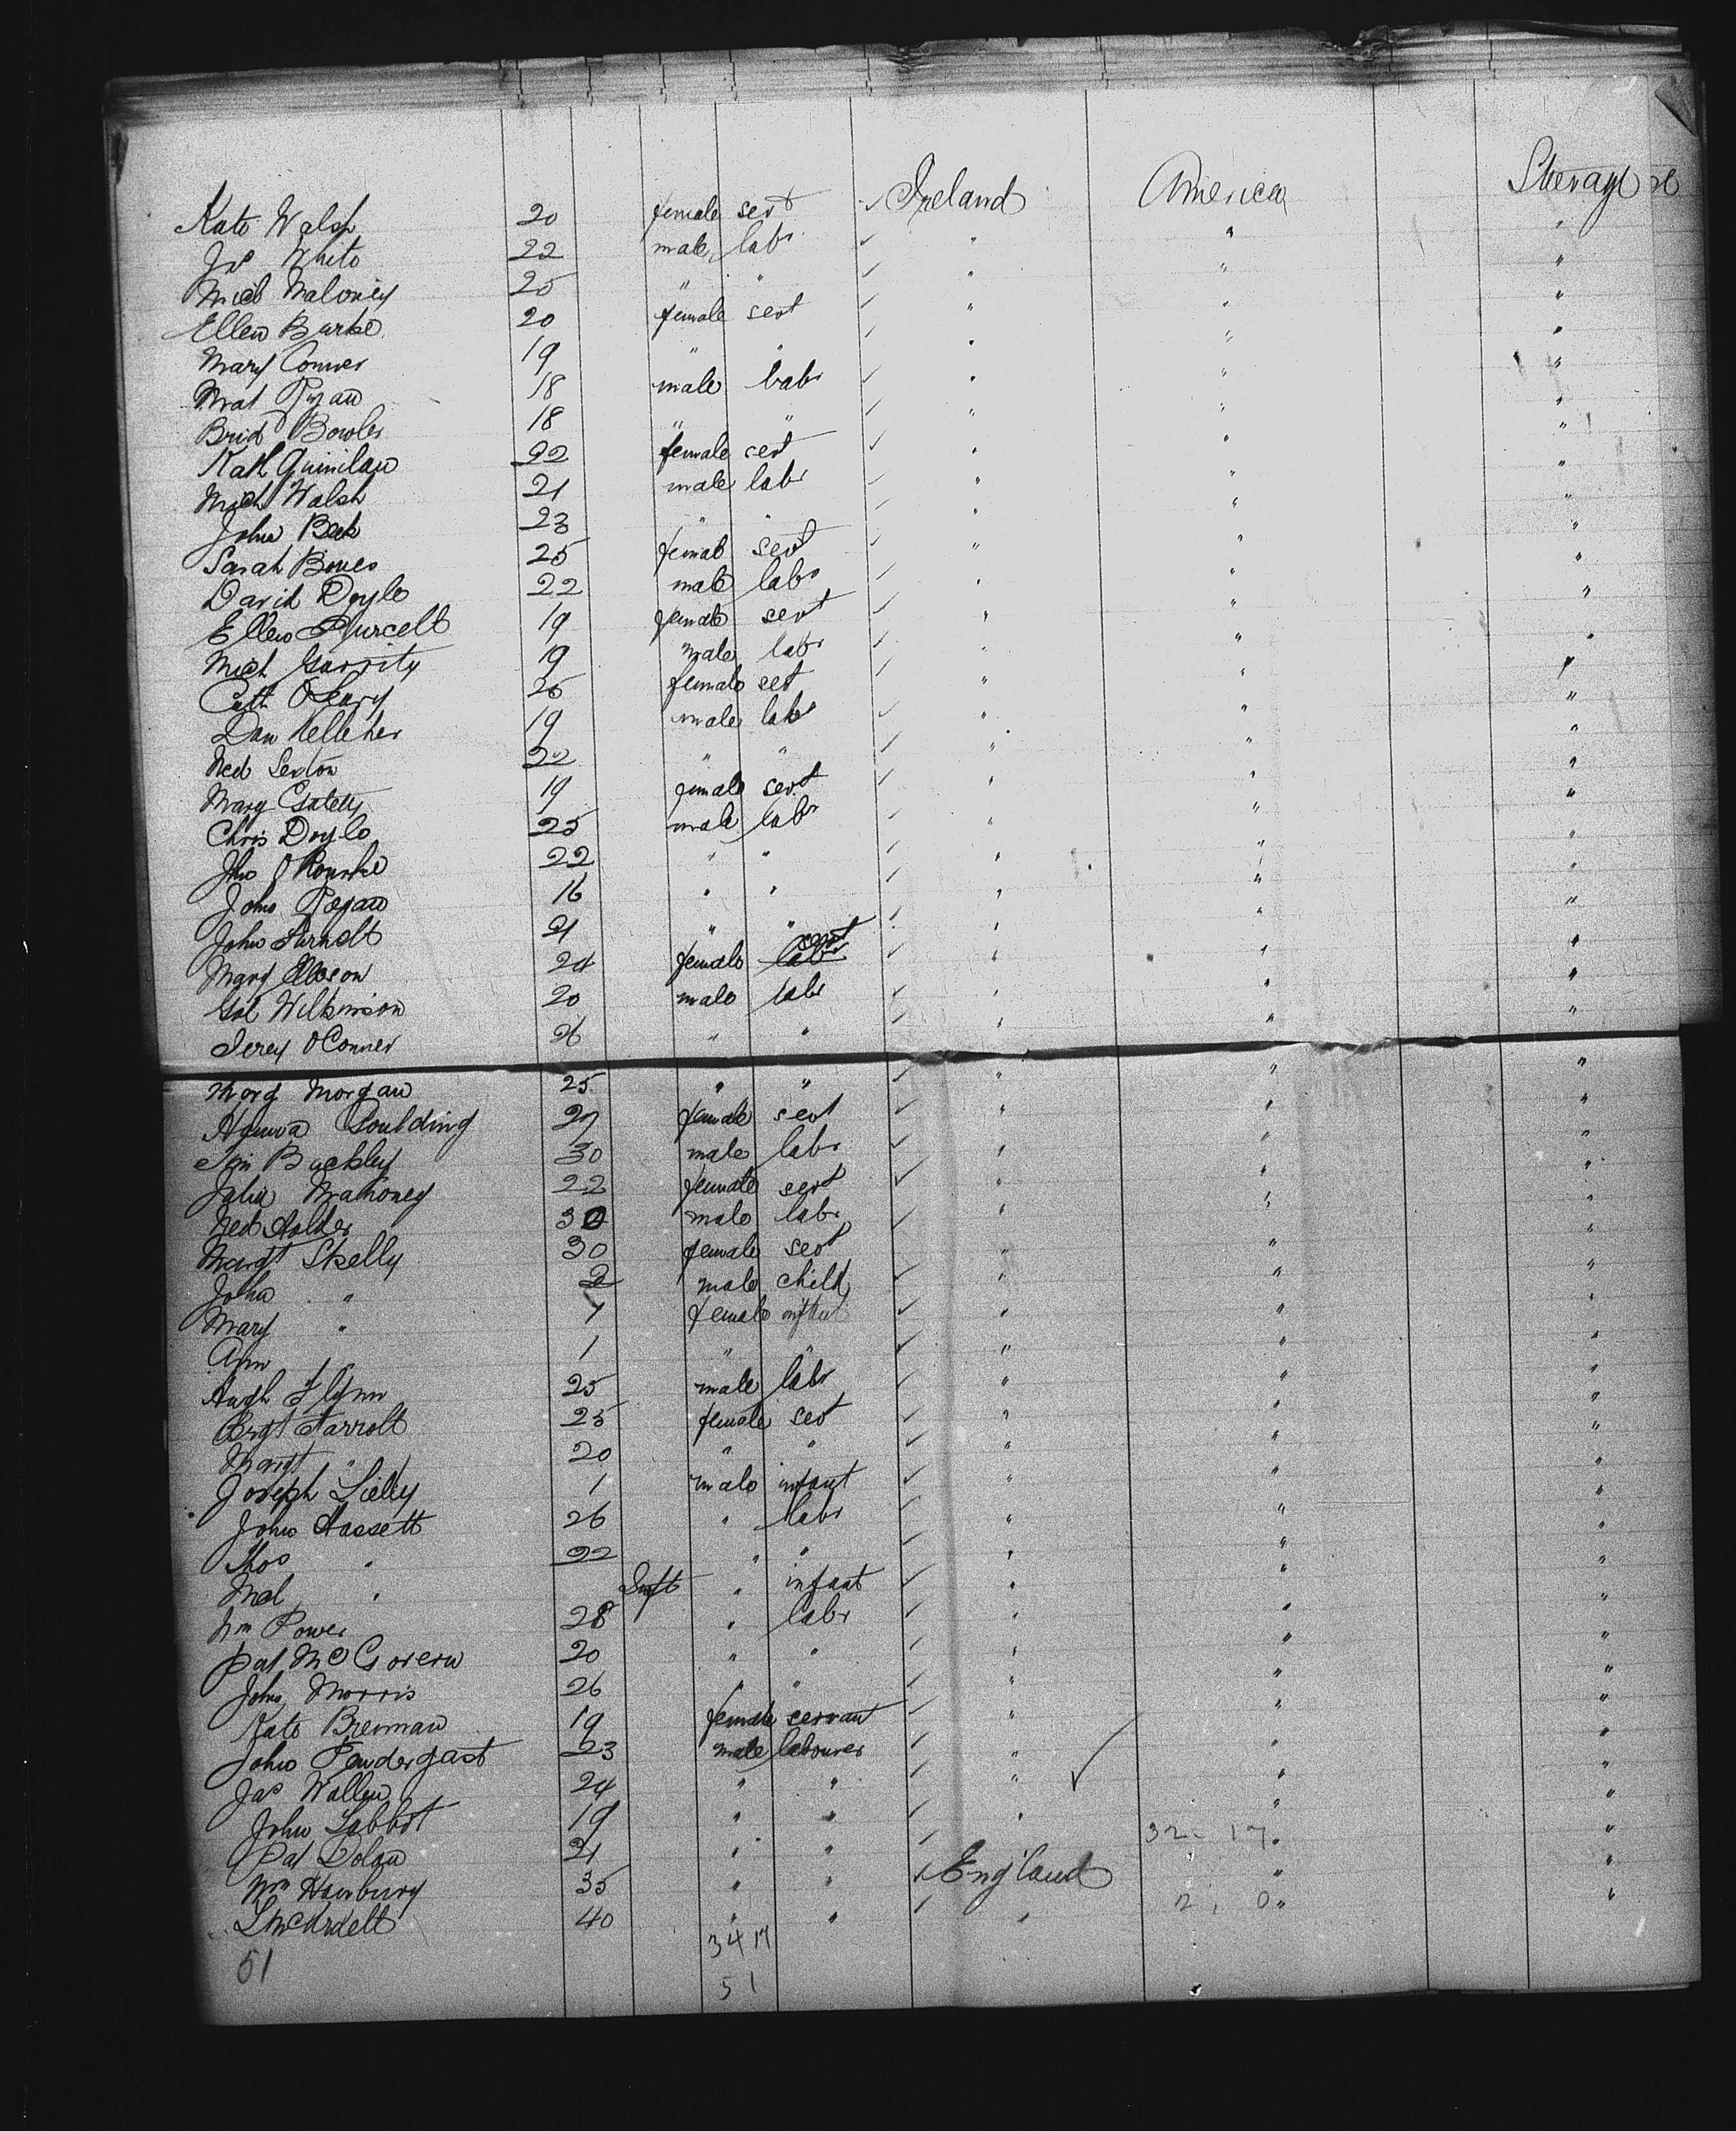 Kate Walsh 20 female sert Ireland America Steerage
Jas White 22 male labr " " "
Mich Maloney 25 " " " " "
Ellen Burke 20 female sert " " "
Mary Conner 19 " " " " "
Mat Ryan 18 male labr " " "
Brid Bowler 18 " " " " "
Kath Quinilan 22 female sert " " "
Mich Walsh 21 male labr " " "
John Beck 23 " " " " "
Sarah Bowes 25 female sert " " "
David Doyle 22 male labr " " "
Ellen Purcell 19 female sert " " "
Mich Garrity 19 male labr " " "
Cath OLeary 25 female sert " " "
Dan Kelleher 19 male labr " " "
Ned Sexton 22 " " " " "
Mary 19 female sert " " "
Chris Doyle 25 male labr " " "
Jno O Rourke 22 " " " " "
John Ryan 16 " " " " "
John 21 " " " " "
Mary 24 female sert " " "
Wilkinson 20 male labr " " "
Jerey OConner 26 " " " " "
Morgan 25 " " " " "
Goulding 27 female sert " " "
Tim Buckley 30 male labr " " "
Julia Mahoney 22 female sert " " "
Ned Holder 30 male labr " " "
Margt Skelly 30 female sert " " "
John " 2 male child " " "
Mary " 1 female infant " " "
Ann " 1 " " " " "
Hugh Flynn 25 male labr " " "
Brgt Farrell 25 female sert " " "
Margt " 20 " " " " "
Joseph 1 male infant " " "
John Hassett 26 " labr " " "
Thos " 22 " " " " "
" " infant " " "
Wm Power 28 " labr " " "
Pat McGovern 20 " " " " "
John Morris 26 " " " " "
Kate Brennan 19 female servant " " "
John Pendergast 23 male labourer " " "
Jas Wallen 24 " " " " "
John 19 " " " " "
Pat Dolan 21 " " 32 17 " "
Wm Hanbury 35 " " England " "
L McArdell 40 " " " 2 0 " "
34 17
51
51